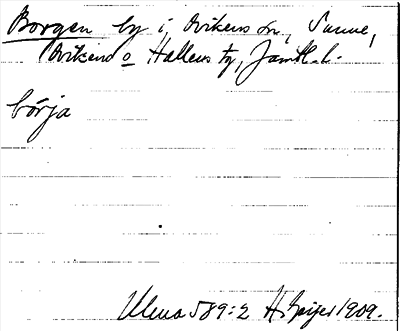 Borgen by i Ovikens sn., Sunne,
Ovikens o Hallens tg, Jämtl. l.
börja
Ulma 589:2 H. Geijer 1909.